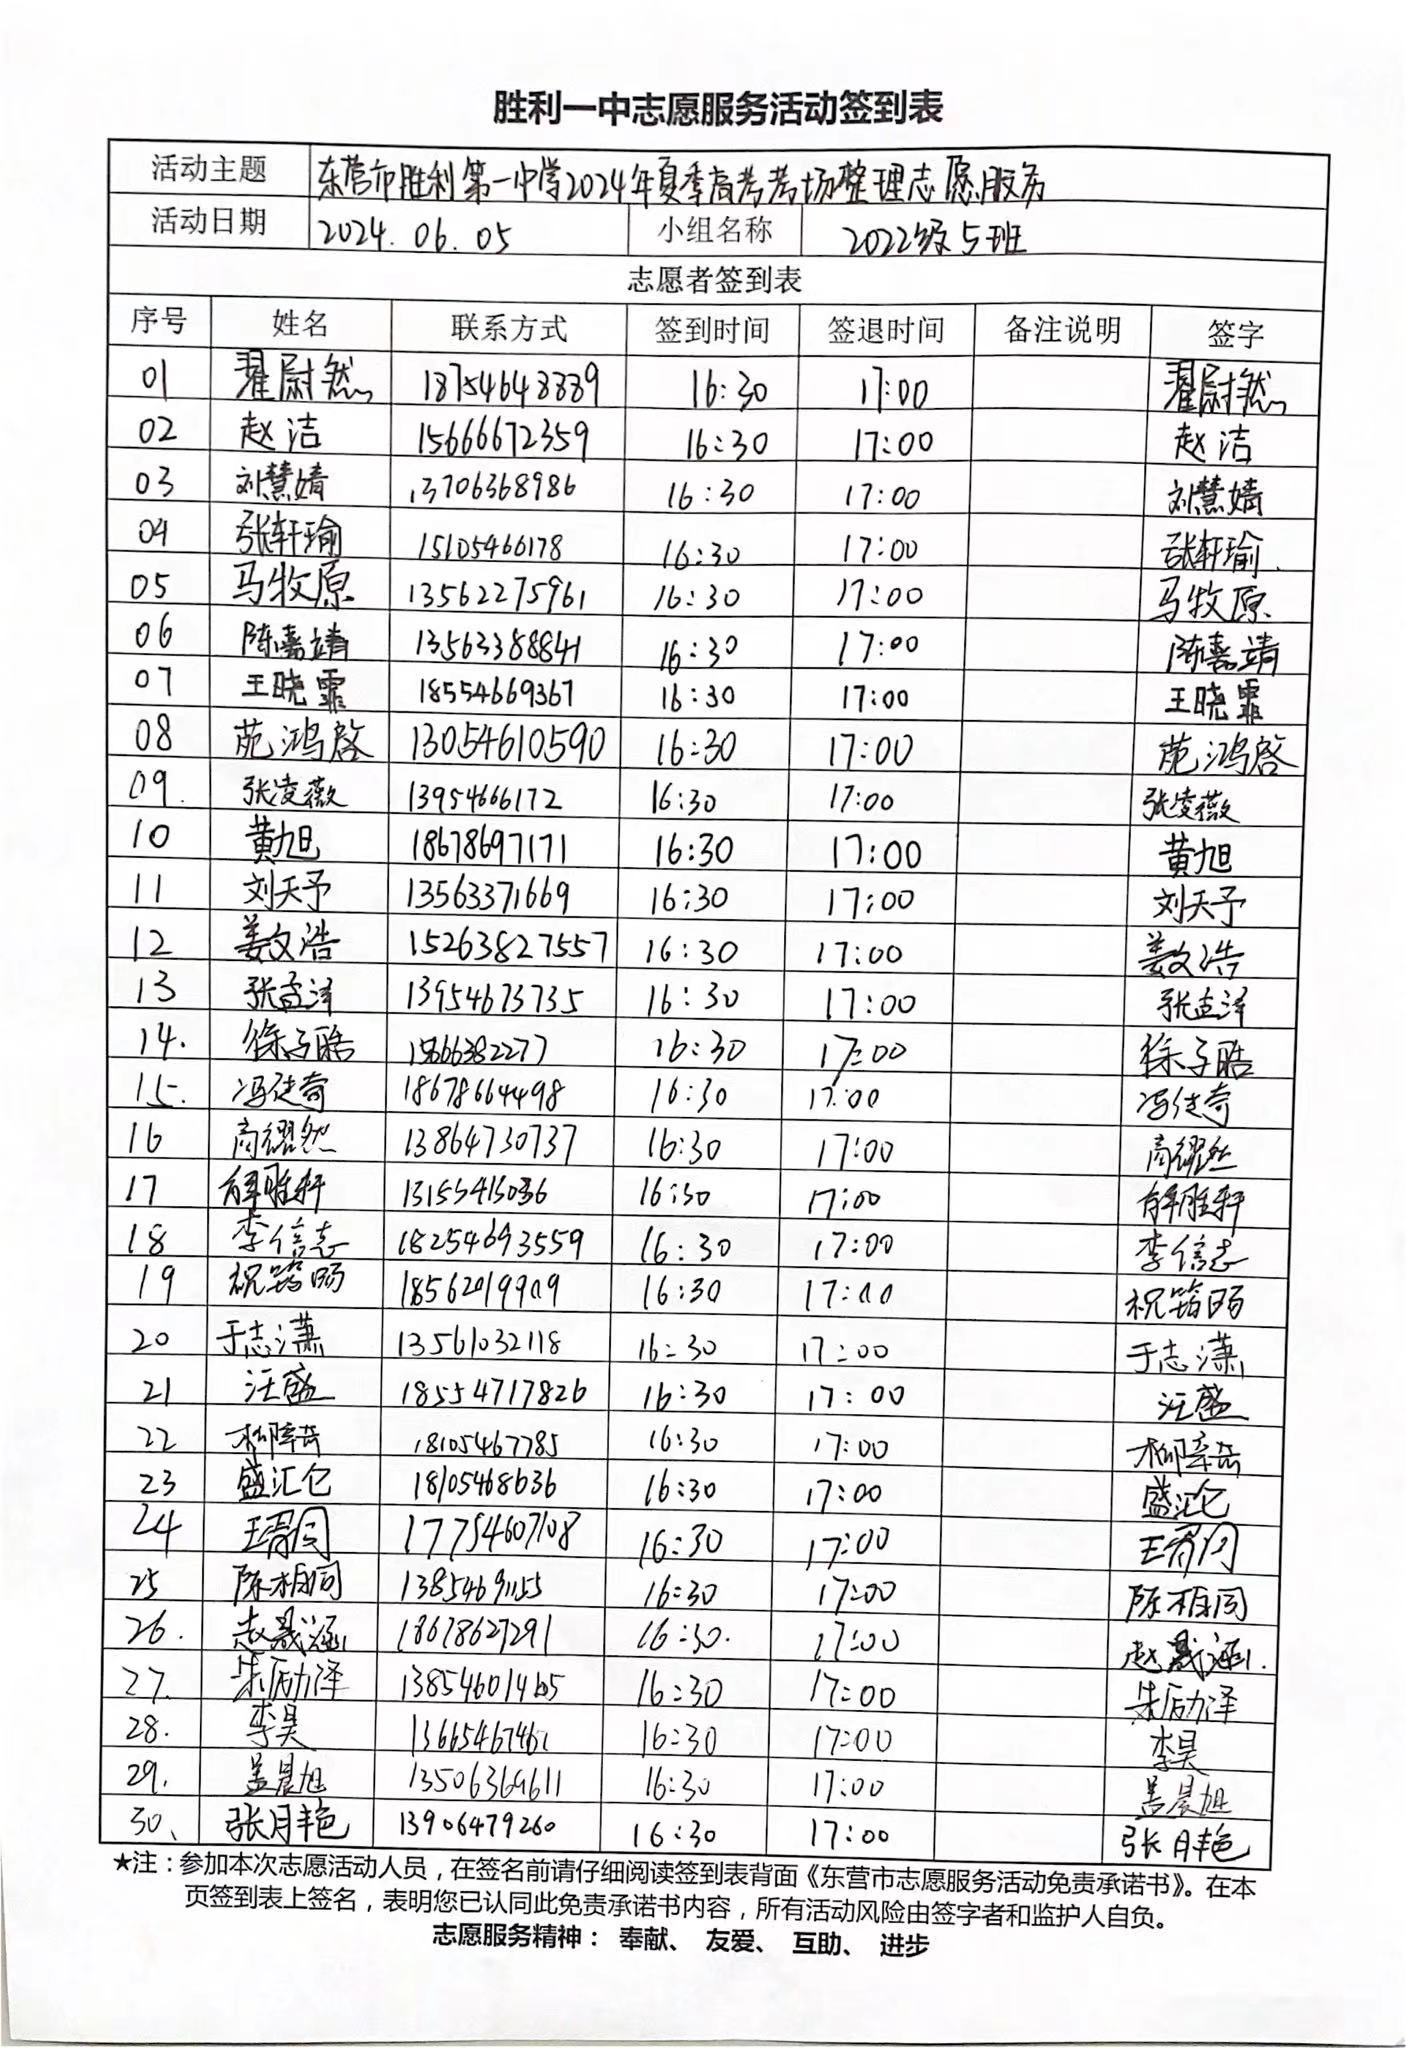 胜利一中志愿服务活动签到表
活动主题 东营市胜利第一中学2024年夏季高考考场整理志愿服务
活动日期 2024.06.05 小组名称 2022级5班
志愿者签到表
序号 姓名 联系方式 签到时间 签退时间 备注说明 签字
01 翟尉然 18754648889 16:30 17:00 翟尉然
02 赵洁 15666672359 16:30 17:00 赵洁
03 刘慧婧 13706368986 16:30 17:00 刘慧婧
04 张轩瑜 15105466178 16:30 17:00 张轩瑜
05 马牧原 13562275961 16:30 17:00 马牧原
06 陈嘉靖 13563388841 16:30 17:00 陈嘉靖
07 王晓霏 18554669367 16:30 17:00 王晓霏
08 苑鸿啓 13054610590 16:30 17:00 苑鸿啓
09. 张凌薇 13954666172 16:30 17:00 张凌薇
10 黄旭 18678697171 16:30 17:00 黄旭
11 刘天予 13563371669 16:30 17:00 刘天予
12 姜文浩 15263827557 16:30 17:00 姜文浩
13 张孟泽 13954673735 16:30 17:00 张孟泽
14. 徐子晧 16:30 17:00 徐子晧
15. 18678664498 16:30 17:00
16 商耀然 13864730737 16:30 17:00 商耀然
17 16:30 17:00
18 李信志 18254693559 16:30 17:00 李信志
19 16:30 17:00
20 于志潇 13561032118 16:30 17:00 于志潇
21 汪盛 18554717826 16:30 17:00 汪盛
22 18105467785 16:30 17:00
23 盛汇仑 18105468636 16:30 17:00 盛汇仑
24 17754607108 16:30 17:00
25 陈相同 13854691155 16:30 17:00 陈相同
26. 赵晟涵 18678627291 16:30. 17:00 赵晟涵.
27. 朱励泽 16:30 17:00 朱励泽
28. 李昊 16:30 17:00 李昊
29. 盖晨旭 13506369611 16:30 17:00 盖晨旭
30、 张月艳 13906479260 16:30 17:00 张月艳
★注：参加本次志愿活动人员，在签名前请仔细阅读签到表背面《东营市志愿服务活动免责承诺书》。在本
页签到表上签名，表明您已认同此免责承诺书内容，所有活动风险由签字者和监护人自负。
志愿服务精神： 奉献、 友爱、 互助、 进步